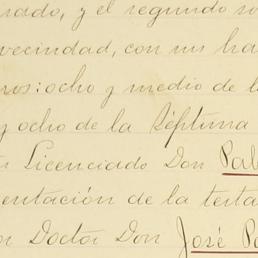 rado, y el segundo so
vecindad, con us ha
ros: ocho y medio de l
y ocho de la Séptima
Licenciado Don Pabl
entación de la testa
or Doctor Don José Pa